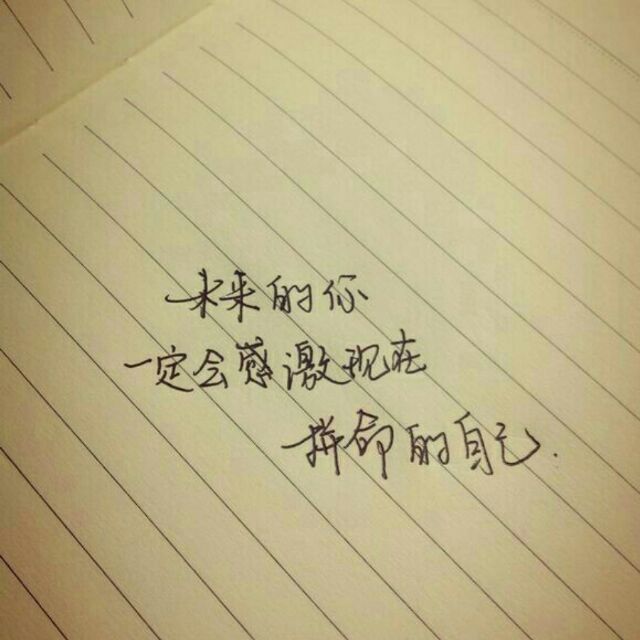 未来的你
一定会感激现在
拼命的自己.